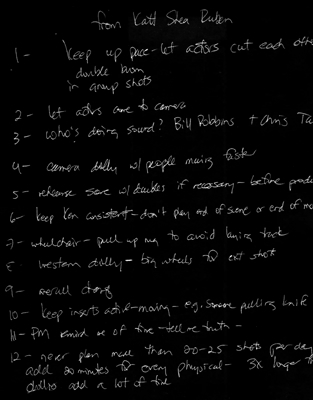 from Katt Shea Ruben
1- Keep up pace - let actors cut each othe
double
in group shots
2- let actors come to camera
3- who's doing sound? Bill Robbins + Chris Ta
4- camera dolly w/ people moving faster
5- rehearse scene w/ doubles if necessary - before produ
6- keep Ken consistent - don't play end of scene or end of mo
7- wheelchair - pull up rug to avoid laying track
8- western dolly - big wheels for ext shot
9- overall
10- keep inserts active - moving - e.g. someone pulling knife
11- PM remind me of time - tell me truth -
12- never plan more than 20-25 shots per day
add 20 minutes for every physical - 3x longer th
dollies add a lot of time